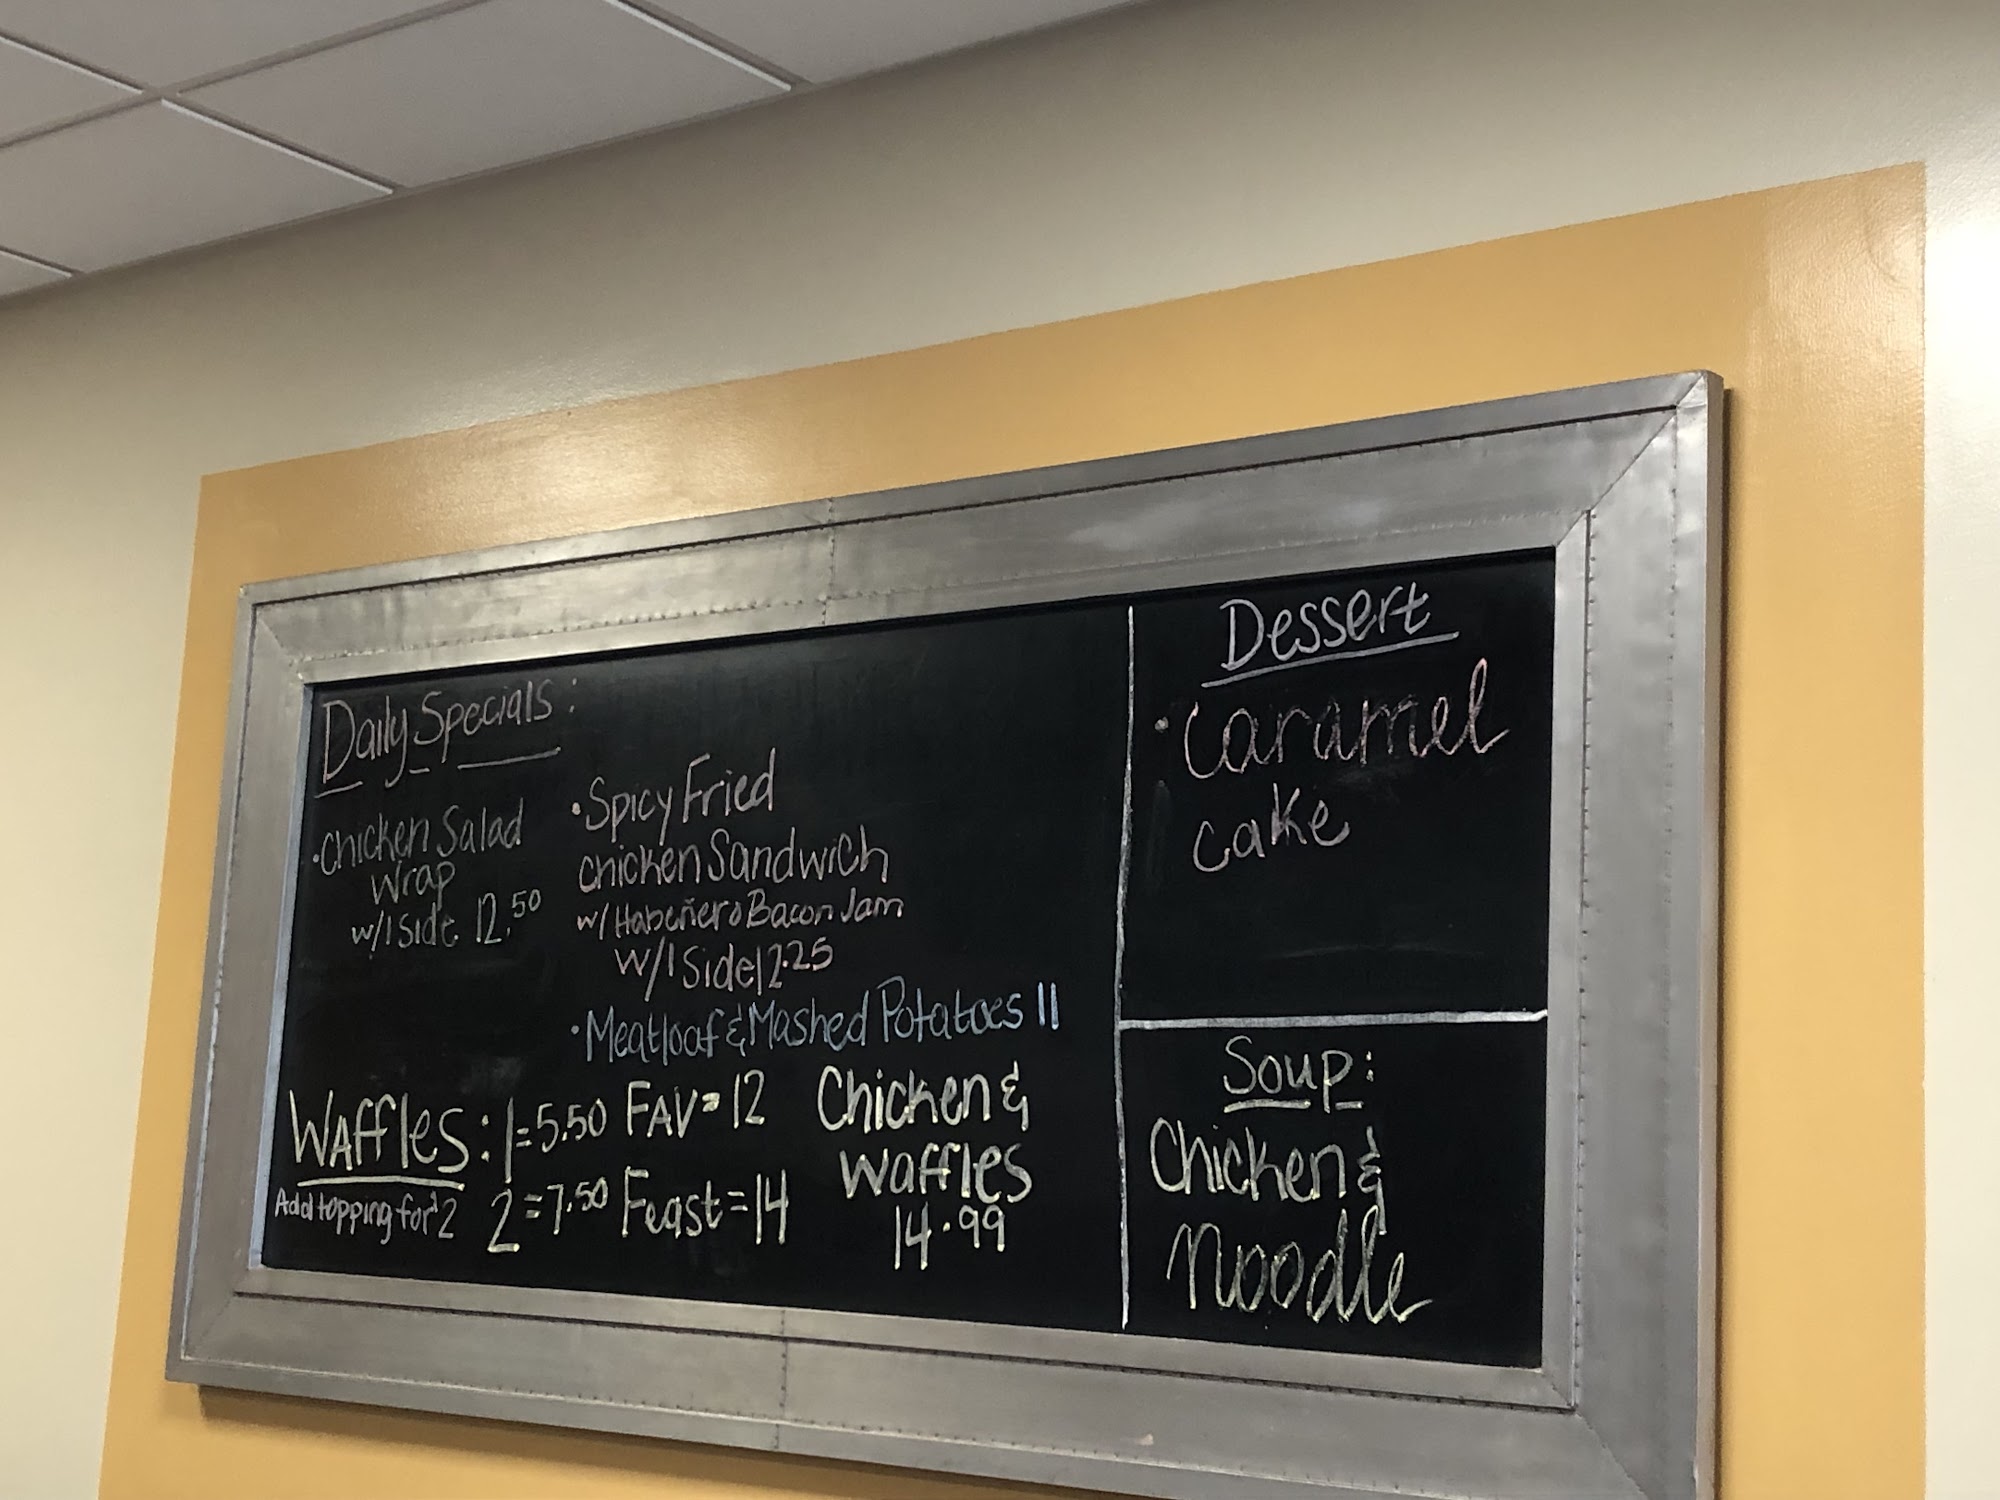 Daily Specials:
• Chicken Salad
Wrap
w/1 Side 12.50
• Spicy Fried
Chicken Sandwich
w/ Habeñero Bacon Jam
w/1 Side 12.25
• Meatloaf & Mashed Potatoes 11
WAffles: 1=5.50 FAV=12
Add topping for 2 2=7.50 Feast=14
Chicken &
Waffles
14.99
Dessert
• Caramel
cake
Soup:
Chicken &
Noodle